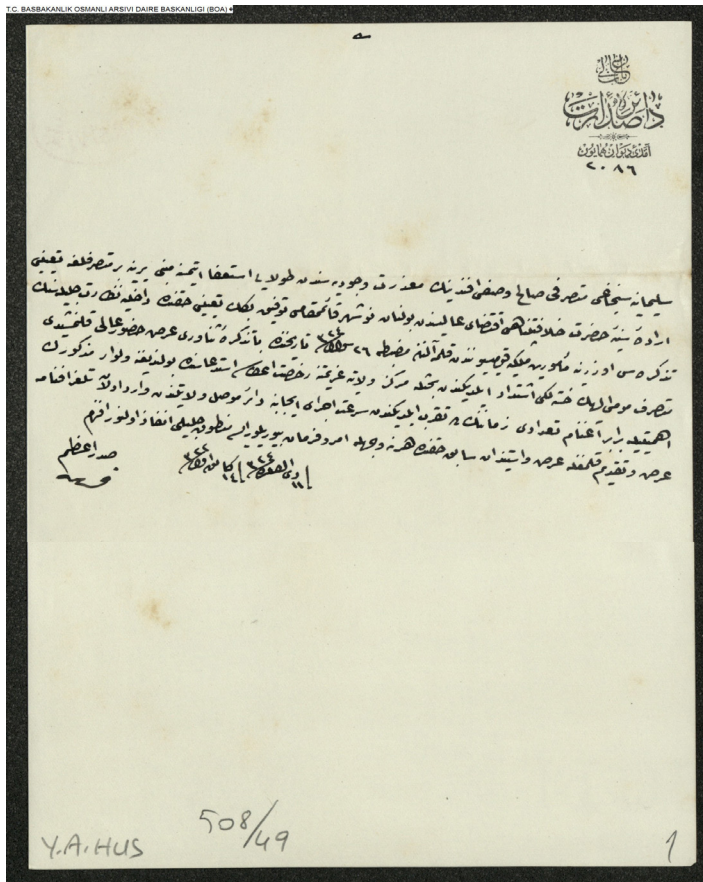 T.C. BASBAKANLIK OSMANLI ARSIVI DAIRE BASKANLIGI (BOA)
باب عالی
دائرهٔ صدارت
آمدی دیوان همایون
٢٠٨٦
سلیمانیه سنجاغی متصرفی صالح وصفی افندینك معذرت وجودیه سندن طولایی استعفا ایتمسنه مبنی یرینه بر متصرفلغه تعیینی
ارادهٔ سنیهٔ حضرت خلافتپناهی اقتضای عالیسندن بولنان نوشهر قائممقامی توفیق بكك تعیینی حقنده داخلیه نظارت جلیله سنك
تذكره سی اوزرینه مأمورین ملكیه قومیسیوننجه قلمه آلنان مضبطه ٢٦ ٣٢٤ تاریخنده با تذكره ثناوری عرض حضور عالی قلنمشیدی
متصرف مومی الیهك خسته لكی اشتداد ایلدیكندن بحثله مركز ولایته عزیمتنه رخصت اعطاسی استدعاسنده بولندیغنه و لوا مذكورك
اهمیتیله برابر اغنام تعدادی زماننك ده تقرب ایلدیكندن سرعت اجرای ایجابنه دائر موصل ولایتندن وارد اولان تلغرافنامه
عرض و تقدیم قلنمغله عرض واستیذان سابق حقنده هر نه وجهله امر و فرمان بیوریلور ایسه منطوق جلیلی انفاذ اولنور افندم
صدر اعظم
فرید
٣٢٤
٣٢٢
١٤
508/49
Y.A.HUS
1